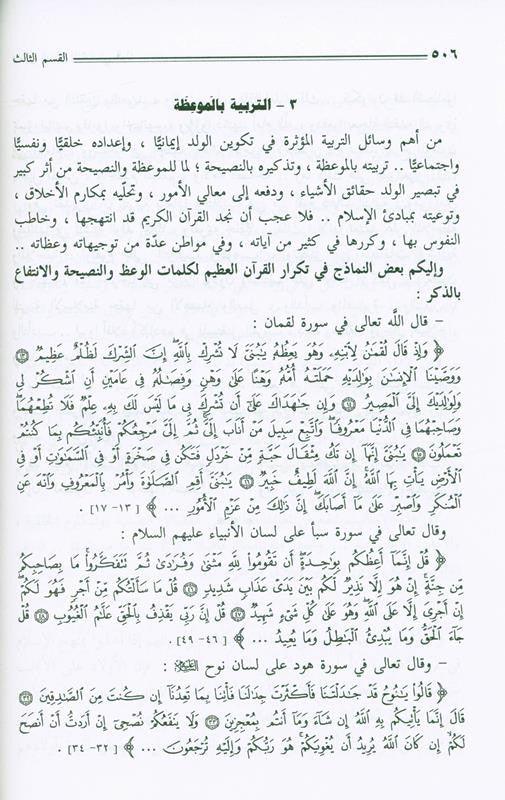 ٥٠٦ القسم الثالث
٣ - التربية بالموعظة
من أهم وسائل التربية المؤثرة في تكوين الولد إيمانيًّا ، وإعداده خلقيًّا ونفسيًّا
واجتماعيًّا .. تربيته بالموعظة ، وتذكيره بالنصيحة ؛ لما للموعظة والنصيحة من أثر كبير
في تبصير الولد حقائق الأشياء ، ودفعه إلى معالي الأمور ، وتحلّيه بمكارم الأخلاق ،
وتوعيته بمبادئ الإسلام .. فلا عجب أن نجد القرآن الكريم قد انتهجها ، وخاطب
النفوس بها ، وكررها في كثير من آياته ، وفي مواطن عدّة من توجيهاته وعظاته ..
وإليكم بعض النماذج في تكرار القرآن العظيم لكلمات الوعظ والنصيحة والانتفاع
بالذكر :
– قال اللَّه تعالى في سورة لقمان :
﴿ وَإِذْ قَالَ لُقْمَٰنُ لِٱبْنِهِۦ وَهُوَ يَعِظُهُۥ يَٰبُنَىَّ لَا تُشْرِكْ بِٱللَّهِۖ إِنَّ ٱلشِّرْكَ لَظُلْمٌ عَظِيمٌ ۝١٣
وَوَصَّيْنَا ٱلْإِنسَٰنَ بِوَٰلِدَيْهِ حَمَلَتْهُ أُمُّهُۥ وَهْنًا عَلَىٰ وَهْنٍ وَفِصَٰلُهُۥ فِى عَامَيْنِ أَنِ ٱشْكُرْ لِى
وَلِوَٰلِدَيْكَ إِلَىَّ ٱلْمَصِيرُ ۝١٤ وَإِن جَٰهَدَاكَ عَلَىٰٓ أَن تُشْرِكَ بِى مَا لَيْسَ لَكَ بِهِۦ عِلْمٌ فَلَا تُطِعْهُمَاۖ
وَصَاحِبْهُمَا فِى ٱلدُّنْيَا مَعْرُوفًاۖ وَٱتَّبِعْ سَبِيلَ مَنْ أَنَابَ إِلَىَّۚ ثُمَّ إِلَىَّ مَرْجِعُكُمْ فَأُنَبِّئُكُم بِمَا كُنتُمْ
تَعْمَلُونَ ۝١٥ يَٰبُنَىَّ إِنَّهَآ إِن تَكُ مِثْقَالَ حَبَّةٍ مِّنْ خَرْدَلٍ فَتَكُن فِى صَخْرَةٍ أَوْ فِى ٱلسَّمَٰوَٰتِ أَوْ فِى
ٱلْأَرْضِ يَأْتِ بِهَا ٱللَّهُۚ إِنَّ ٱللَّهَ لَطِيفٌ خَبِيرٌ ۝١٦ يَٰبُنَىَّ أَقِمِ ٱلصَّلَوٰةَ وَأْمُرْ بِٱلْمَعْرُوفِ وَٱنْهَ عَنِ
ٱلْمُنكَرِ وَٱصْبِرْ عَلَىٰ مَآ أَصَابَكَۖ إِنَّ ذَٰلِكَ مِنْ عَزْمِ ٱلْأُمُورِ ... ﴾ [ ١٣- ١٧ ] .
وقال تعالى في سورة سبأ على لسان الأنبياء عليهم السلام :
﴿ قُلْ إِنَّمَآ أَعِظُكُم بِوَٰحِدَةٍۖ أَن تَقُومُوا۟ لِلَّهِ مَثْنَىٰ وَفُرَٰدَىٰ ثُمَّ تَتَفَكَّرُوا۟ۚ مَا بِصَاحِبِكُم
مِّن جِنَّةٍۚ إِنْ هُوَ إِلَّا نَذِيرٌ لَّكُم بَيْنَ يَدَىْ عَذَابٍ شَدِيدٍ ۝٤٦ قُلْ مَا سَأَلْتُكُم مِّنْ أَجْرٍ فَهُوَ لَكُمْۖ
إِنْ أَجْرِىَ إِلَّا عَلَى ٱللَّهِۖ وَهُوَ عَلَىٰ كُلِّ شَىْءٍ شَهِيدٌ ۝٤٧ قُلْ إِنَّ رَبِّى يَقْذِفُ بِٱلْحَقِّ عَلَّٰمُ ٱلْغُيُوبِ ۝٤٨ قُلْ
جَآءَ ٱلْحَقُّ وَمَا يُبْدِئُ ٱلْبَٰطِلُ وَمَا يُعِيدُ ... ﴾ [ ٤٦- ٤٩ ] .
– وقال تعالى في سورة هود على لسان نوح :
﴿ قَالُوا۟ يَٰنُوحُ قَدْ جَٰدَلْتَنَا فَأَكْثَرْتَ جِدَٰلَنَا فَأْتِنَا بِمَا تَعِدُنَآ إِن كُنتَ مِنَ ٱلصَّٰدِقِينَ ۝٣٢
قَالَ إِنَّمَا يَأْتِيكُم بِهِ ٱللَّهُ إِن شَآءَ وَمَآ أَنتُم بِمُعْجِزِينَ ۝٣٣ وَلَا يَنفَعُكُمْ نُصْحِىٓ إِنْ أَرَدتُّ أَنْ أَنصَحَ
لَكُمْ إِن كَانَ ٱللَّهُ يُرِيدُ أَن يُغْوِيَكُمْۚ هُوَ رَبُّكُمْ وَإِلَيْهِ تُرْجَعُونَ ... ﴾ [ ٣٢- ٣٤ ] .